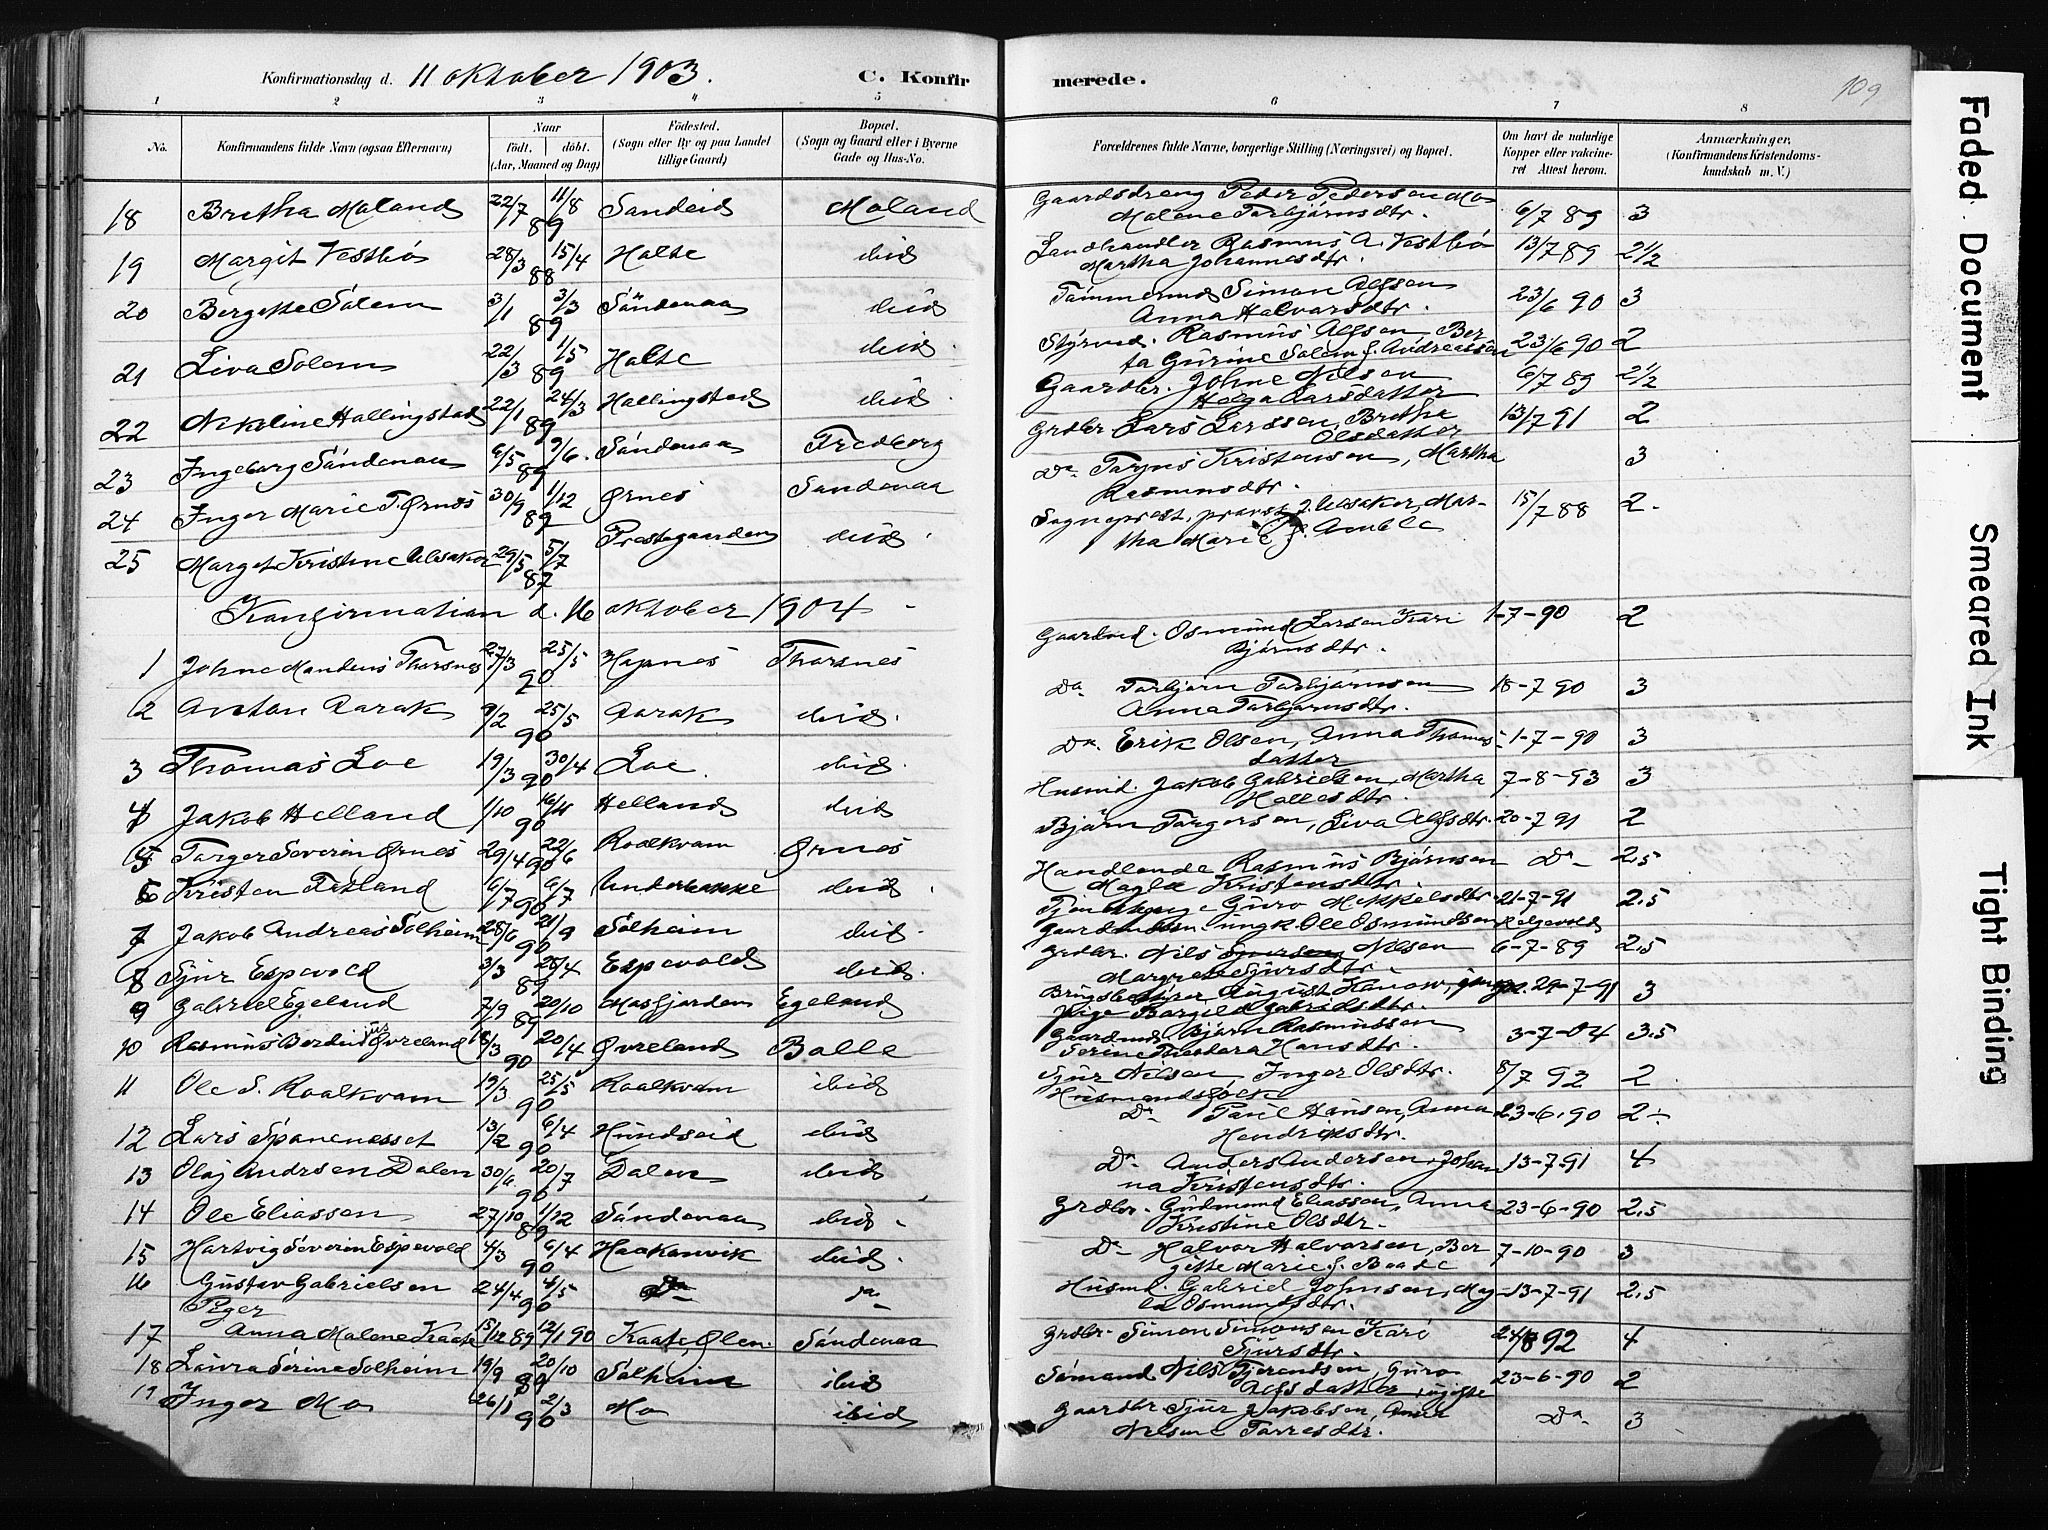 Konfirmationsdag d. 11 oktober 1903. C. Konfirmerede. 109
1 2 3 4 5 6 7 8
No. Konfirmandens fulde Navn (ogsaa Efternavn) Naar Født. døbt. (Aar, Maaned og Dag) Fødested. (Sogn eller By og paa Landet tillige Gaard) Bopæl. (Sogn og Gaard eller i Byerne Gade og Hus-No. Forældrenes fulde Navne, borgerlige Stilling (Næringsvei) og Bopæl. Om havt de naturlige Kopper eller vakcineret Attest herom. Anmærkninger, (Konfirmandens Kristendomskundskab m. V.)
18 Bretha Moland 22/7 11/8 89 Sandeid Moland Gaardsdreng Peder Pedersen Mo Malene Torbjørnsdtr. 6/7 89 3
19 Margit Vestbø 28/3 15/4 88 Holte ibid Landhandler Rasmus A. Vestbø Martha Johannesdtr. 13/7 89 2 1/2
20 Bergette Solem 3/1 3/3 89 Søndenaa ibid Tømmermd Simon Alfsen Anna Halvorsdtr. 23/6 90 3
21 Liva Solem 22/3 1/5 89 Holte ibid. Styrmd. Rasmus Alfsen Berta Gurine Solem f. Andreassen 23/6 90 2
22 Nikoline Hallingstad 22/1 24/3 89 Hallingstad ibid. Gaardbr. Johne Nilsen Helga Larsdatter 6/7 89 2 1/2
23 Ingeborg Søndenaa 6/5 9/6. 89 Søndenaa Fredberg Grdbr. Lars Larssen, Bretha Olsdatter 13/7 91 2
24 Inger Marie T. Ørnes 30/9 1/12 89 Ørnes Søndenaa Do Kristensen, Martha Rasmusdtr. 3
25 Marget Kristine Alsaker 29/5 5/7 87 Prestegaarden ibid. Sogneprest, provst J. Alsaker, Martha Marie f. Amble 15/7 88 2.
Konfirmation d. 16 oktober 1904
1 Johne Mandeus Thorsnes 27/3 25/5 90 Høgnes Thorsnes Gaardmd. Osmund Larsen Kari Bjørnsdtr. 1-7-90 2
2 Anton Aarak 9/2 25/5 90 Aarak ibid. Do Torbjørn Torbjørnsen Anna Torbjørnsdtr. 18-7 90 3
3 Thomas Loe 19/3 30/4 90 Loe. ibid. Do. Erik Olsen, Anna Thomasdatter 1-7-90 3
4 Jakob Helland 1/10 16/11 90 Helland ibid Husmd. Jakob Gabrielsen, Martha Hallesdtr. 7-8-93 3
5 Torger Severin Ørnes 29/4 22/6 90 Roalkvam Ørnes Bjørn Torgersen, Liva Alfsdtr. 20-7 91 2
6 Kristen 6/7 6/7 90 Underbakke ibid. Handlende Rasmus Bjørnsen Magla Kristensdtr. Do 2,5
7 Jakob Andreas Solheim 28/6 21/9 90 Solheim ibid. Guro Mikkelsdtr. ungk. Ole Osmundsen 21-7-91 2,5
8 Sjur Espevold 3/3 28/4 89 Espevold ibid. Grdbr. Nils Nilsen Margrete Sjursdtr. 6-7-89 2,5
9 Gabriel Egeland 7/9 20/10 89 Masfjorden Egeland August Bergit Gabrielsdtr. 29-7-91 3
10 Rasmus Berdinius Øvreland 18/3 20/4 90 Øvreland Bolle Gaardmd. Bjørn Rasmussen Serine Hansdtr. 3-7-04 3,5
11 Ole S. Roalkvam 19/3 25/5 90 Roalkvam ibid Sjur Nilsen Inger Olsdtr. Husmandsfolk 8/7 92 2
12 Lars Spanenesset 13/2 6/4 90 Hundseid ibid Do Paul Hansen, Anna Hendriksdtr. 23-6-90 2÷
13 Olaj Andrsen Dalen 30/6 20/7 90 Dalen ibid Do Anders Andersen, Johanna Kristensdtr. 13-7-91 4
14 Ole Eliassen 27/10 1/12 89 Søndenaa ibid. Grdbr. Gudmund Eliassen, Anna Kristine Olsdtr. 23-6-90 2,5
15 Hartvig Severin Espevold 4/3 6/4 90 Haakonvik ibid. Do Halvor Halvorsen, Bergitte Marie f. Baade 7-10-90 3
16 Gustav Gabrielsen 24/4 4/5 90 Do Do Husmd. Gabriel Johnsen, Magla Osmundsdtr. 13-7-91 2,5
Piger
17 Anna Malene Kaate 15/12 89 12/1 90 Kaate, Ølen. Søndenaa Grdbr. Simon Simonsen Kari Sjursdtr. 24/8 92 4
18 Laura Serine Solheim 19/9 20/10 89 Solheim ibid Sømand Nils Guro Alfsdatter, ugifte 23-6-90 2
19 Inger Mo 26/1 2/3 90 Mo ibid Gaardbr. Sjur Jakobsen, Anna Torresdtr. Do 3
Faded Document
Smeared Ink
Tight Binding